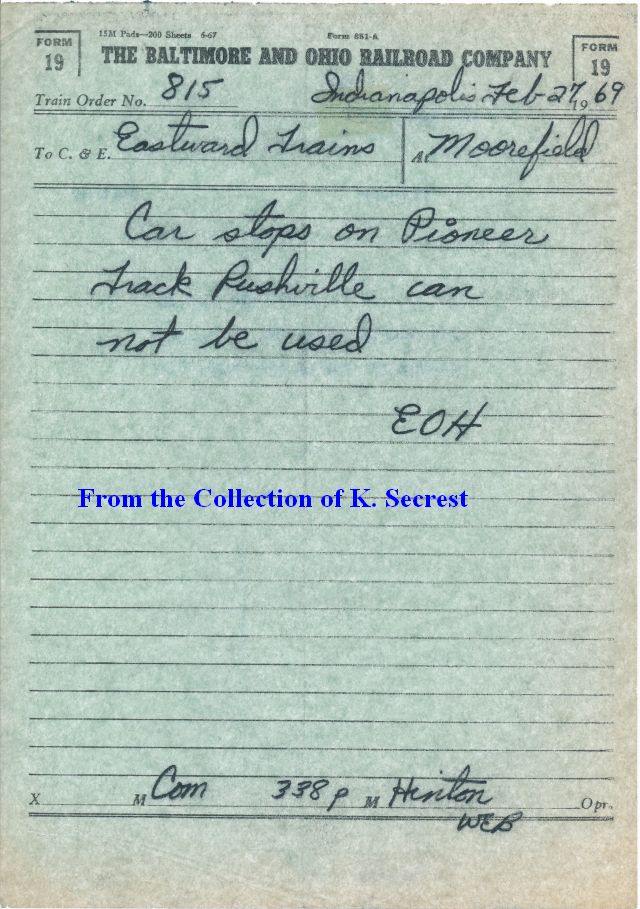 15M Pads—200 Sheets 6-67 Form 881-A
FORM 19 THE BALTIMORE AND OHIO RAILROAD COMPANY FORM 19
Train Order No. 815 Indianapolis Feb 27, 1969
To C. & E. Eastward Trains At Moorefield
Car stops on Pioneer
Track Rushville can
not be used
EOH
From the Collection of K. Secrest
X M Com 338 p M Hinton Opr.
WEB